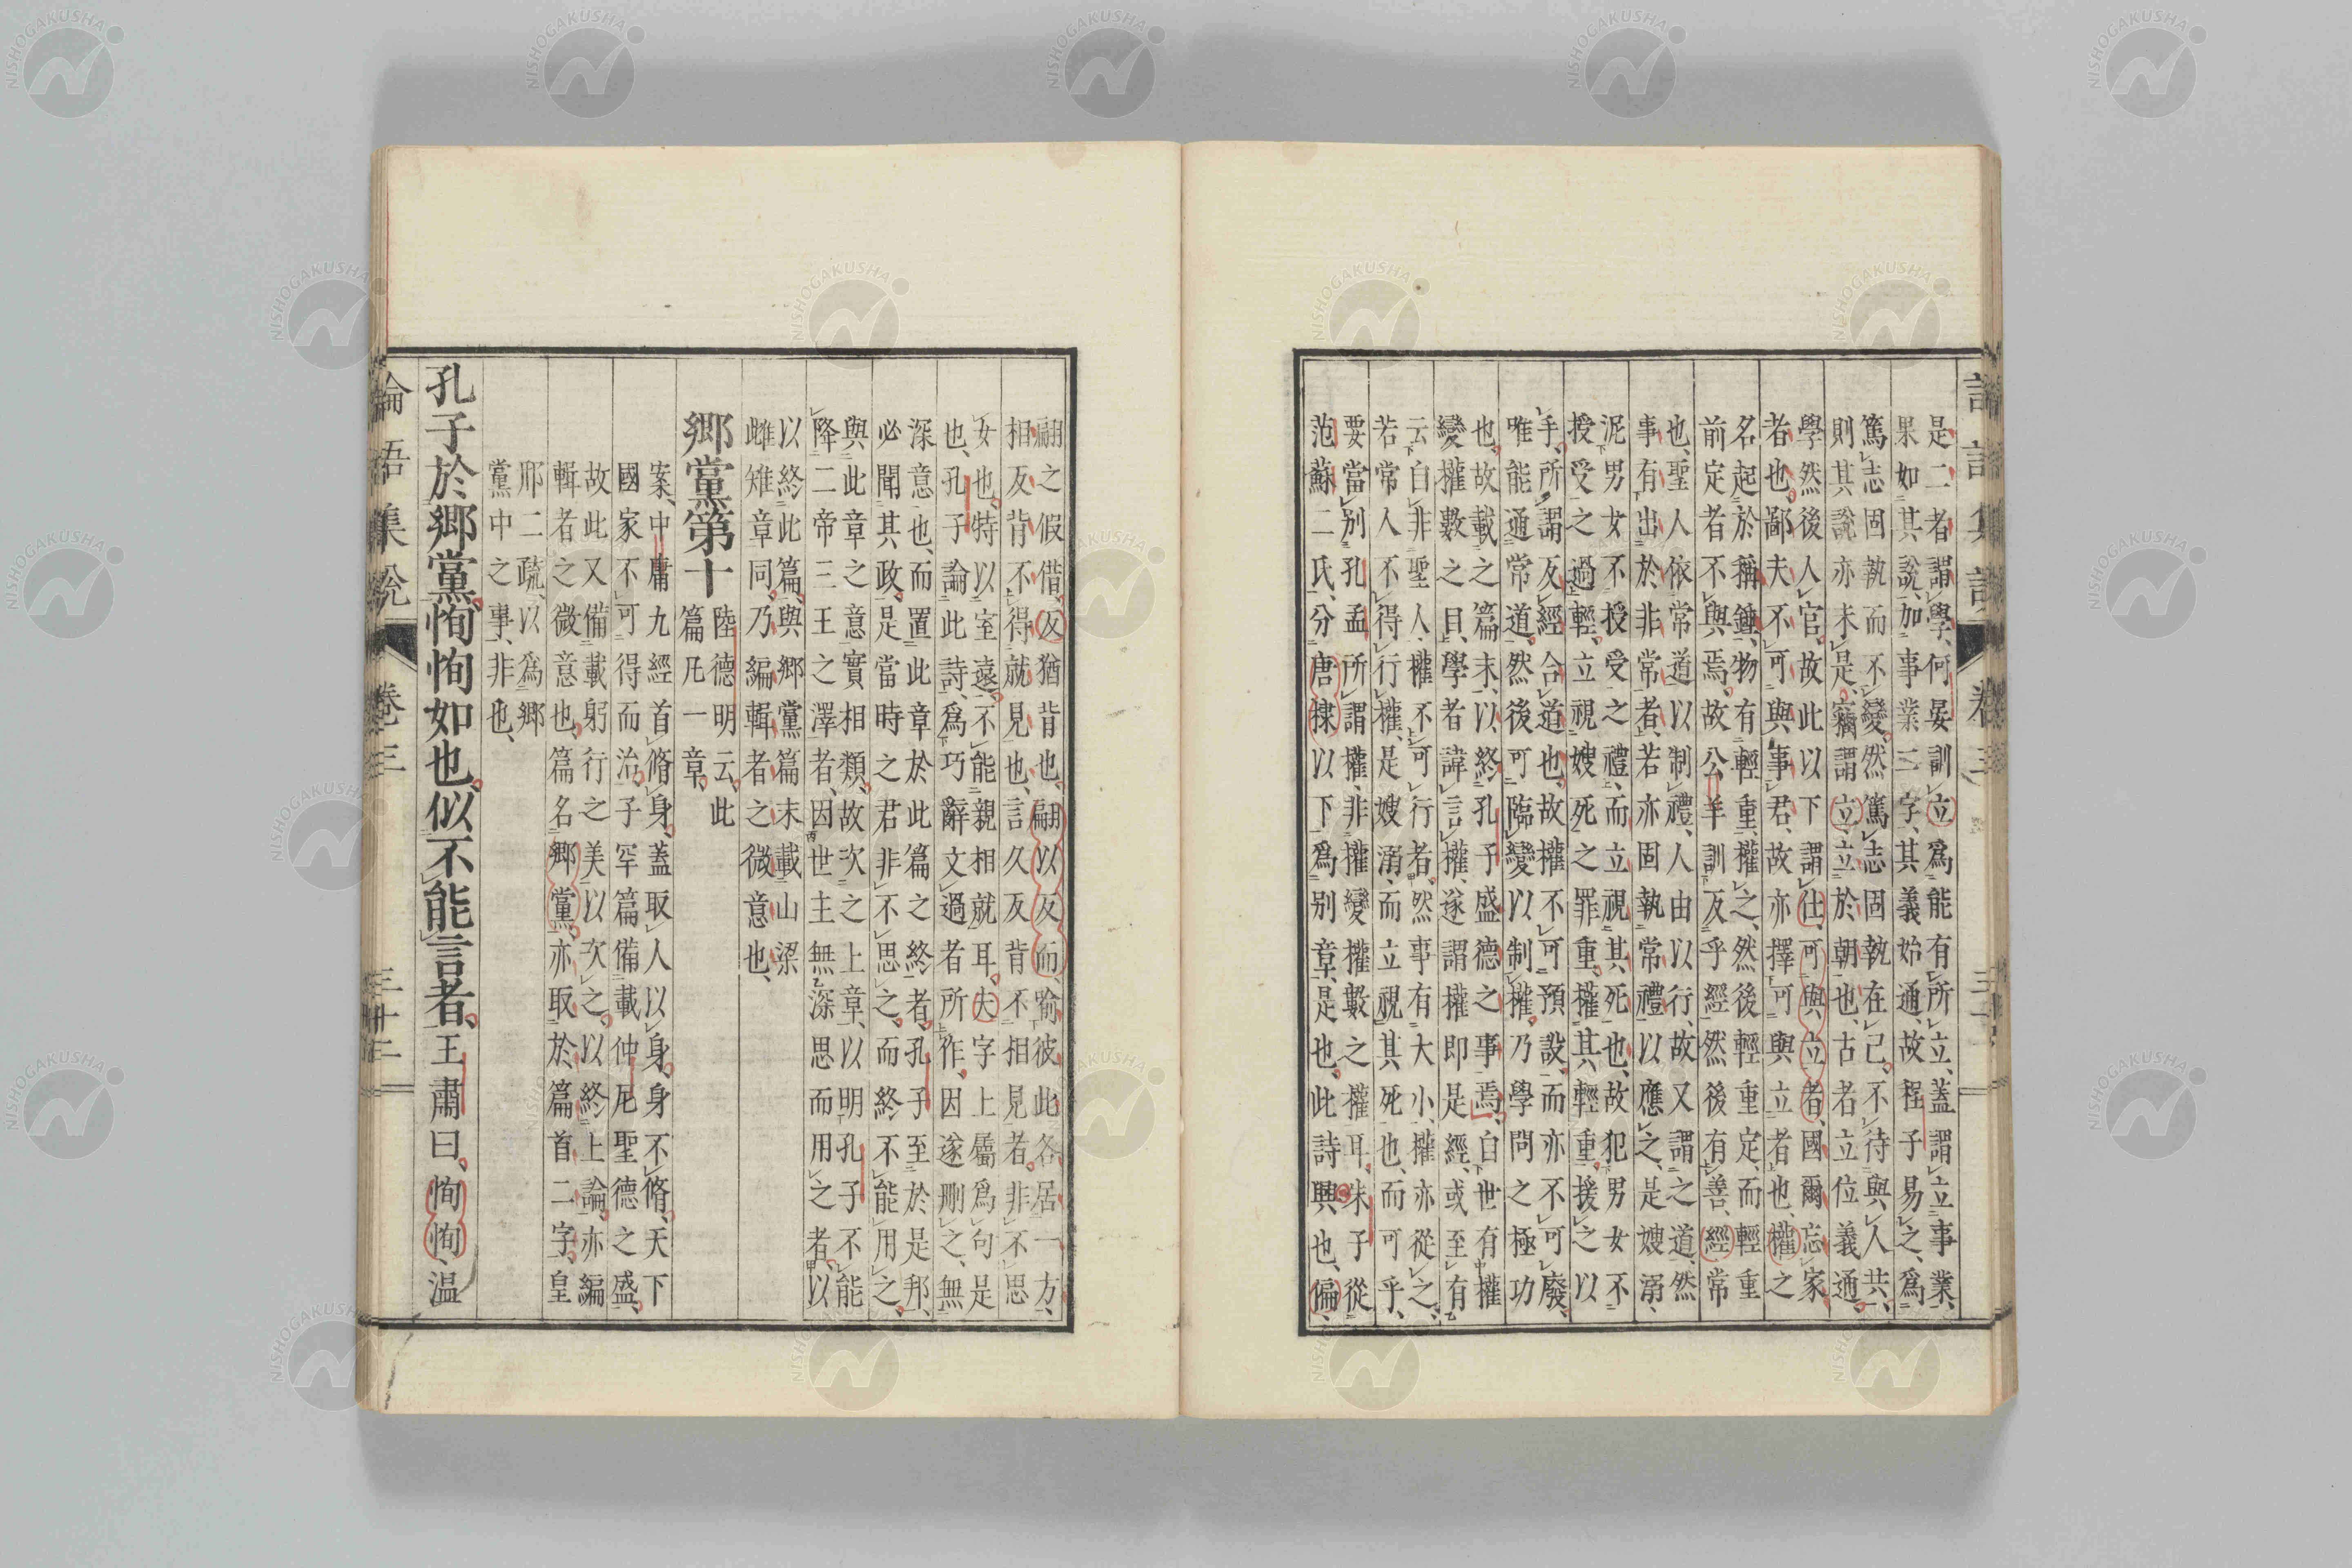 是二者謂學、何晏訓立爲能有所立、蓋謂立事業、
果如其說、加事業二字、其義始通、故程子易之、爲
篤志固執而不變、然篤志固執在己、不待與人共、
則其說亦未是、竊謂立、立於朝也、古者立位義通、
學然後人官、故此以下謂仕、可與立者、國爾忘家
者也、鄙夫不可與事君、故亦擇可與立者也、權之
名起於稱鍾、物有輕重、權之、然後輕重定、而輕重
前定者不與焉、故公羊訓反乎經然後有善、經常
也、聖人依常道以制禮、人由以行、故又謂之道、然
事有出於非常者、若亦固執常禮以應之、是嫂溺、
泥男女不授受之禮、而立視其死也、故犯男女不
授受之過輕、立視嫂死之罪重、權其輕重、援之以
手、所謂反經合道也、故權不可預設、而亦不可廢、
唯能通常道、然後可臨變以制權、乃學問之極功
也、故載之篇末、以終孔子盛德之事焉、自世有權
變權數之目、學者諱言權、遂謂權即是經、或至有
云自非聖人、權不可行者、然事有大小、權亦從之、
若常人不得行權、是嫂溺、而立視其死也、而可乎、
要當別孔孟所謂權、非權變權數之權耳、朱子從
范蘇二氏、分唐棣以下爲別章、是也、此詩興也、偏、
翩之假借、反猶背也、翩以反而、喻彼此各居一方、
相反背不得就見也、言久反背不相見者、非不思
女也、特以室遠、不能親相就耳、夫字上屬爲句是
也、孔子論此詩、爲巧辭文過者所作、因遂刪之、無
深意也、而置此章於此篇之終者、孔子至於是邦、
必聞其政、是當時之君非不思之、而終不能用之、
與此章之意實相類、故次之上章、以明孔子不能
降二帝三王之澤者、因世主無深思而用之者、以
以終此篇、與鄉黨篇末載山梁
雌雉章同、乃編輯者之微意也、
鄉黨第十
陸德明云、此
篇凡一章、
案、中庸九經首脩身、蓋取人以身、身不脩、天下
國家不可得而治、子罕篇備載仲尼聖德之盛、
故此又備載躬行之美以次之、以終上論、亦編
輯者之微意也、篇名鄉黨、亦取於篇首二字、皇
邢二疏、以爲鄉
黨中之事、非也、
孔子於鄉黨、恂恂如也、似不能言者、王肅曰、恂恂、温
論語集說 卷三 三十二